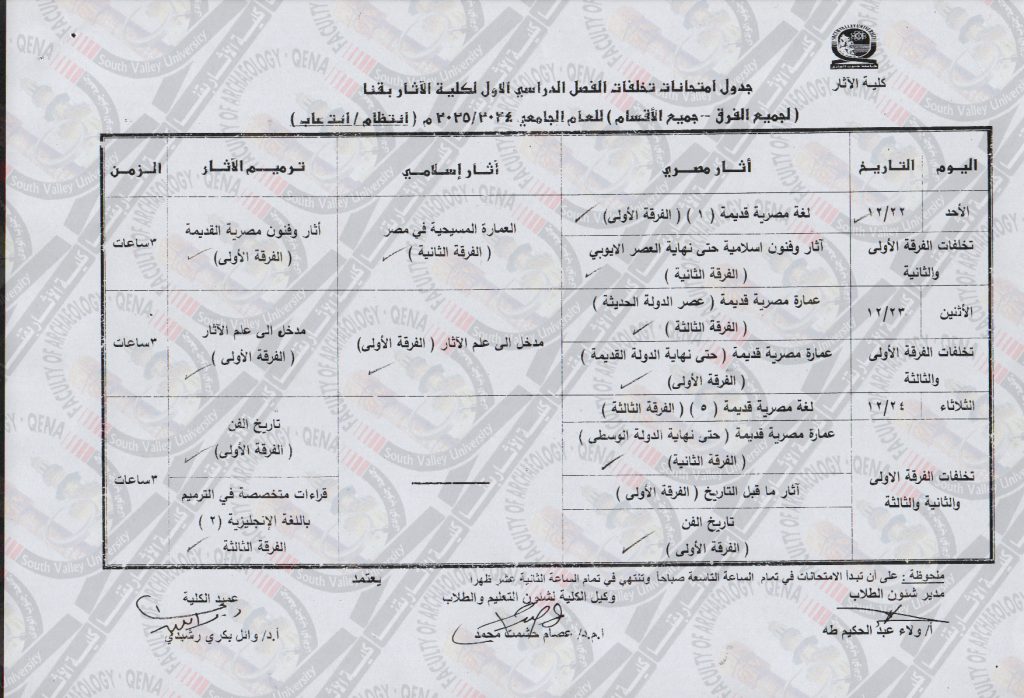 كلية الآثار
جدول امتحانات تخلفات الفصل الدراسي الاول لكلية الآثار بقنا
( لجميع الفرق -- جميع الأقسام ) للعام الجامعي ٢٠٢٥/٢٠٢٤ م ( انتظام / انتساب )
اليوم التاريخ أثار مصري أثار إسلامي ترميم الآثار الزمن
الأحد ١٢/٢٢ لغة مصرية قديمة ( ١ ) ( الفرقة الأولى)
تخلفات الفرقة الأولى
والثانية
آثار وفنون اسلامية حتى نهاية العصر الايوبي
( الفرقة الثانية )
العمارة المسيحية في مصر
( الفرقة الثانية )
أثار وفنون مصرية القديمة
( الفرقة الأولى)
٣ساعات
الأثنين ١٢/٢٣ عمارة مصرية قديمة ( عصر الدولة الحديثة )
( الفرقة الثالثة )
تخلفات الفرقة الأولى
والثالثة
عمارة مصرية قديمة ( حتى نهاية الدولة القديمة )
( الفرقة الأولى)
مدخل الى علم الآثار ( الفرقة الأولى)
مدخل الى علم الآثار
( الفرقة الأولى )
٣ساعات
الثلاثاء ١٢/٢٤ لغة مصرية قديمة ( ٥ ) ( الفرقة الثالثة )
تخلفات الفرقة الاولى
والثانية والثالثة
عمارة مصرية قديمة ( حتى نهاية الدولة الوسطى )
( الفرقة الثانية)
آثار ما قبل التاريخ ( الفرقة الأولى )
تاريخ الفن
( الفرقة الأولى )
تاريخ الفن
( الفرقة الأولى)
قراءات متخصصة في الترميم
باللغة الإنجليزية ( ٢ )
الفرقة الثالثة
٣ساعات
ملحوظة : على أن تبدأ الامتحانات في تمام الساعة التاسعة صباحاً وتنتهي في تمام الساعة الثانية عشر ظهرا
يعتمد
مدير شئون الطلاب وكيل الكلية لشئون التعليم والطلاب عميد الكلية
أ/ ولاء عبد الحكيم طه أ.م.د/ عصام حشمت محمد أ.د/ وائل بكري رشيدي
SOUTH VALLEY UNIVERSITY
FACULTY OF ARCHAEOLOGY · QENA
South Valley University